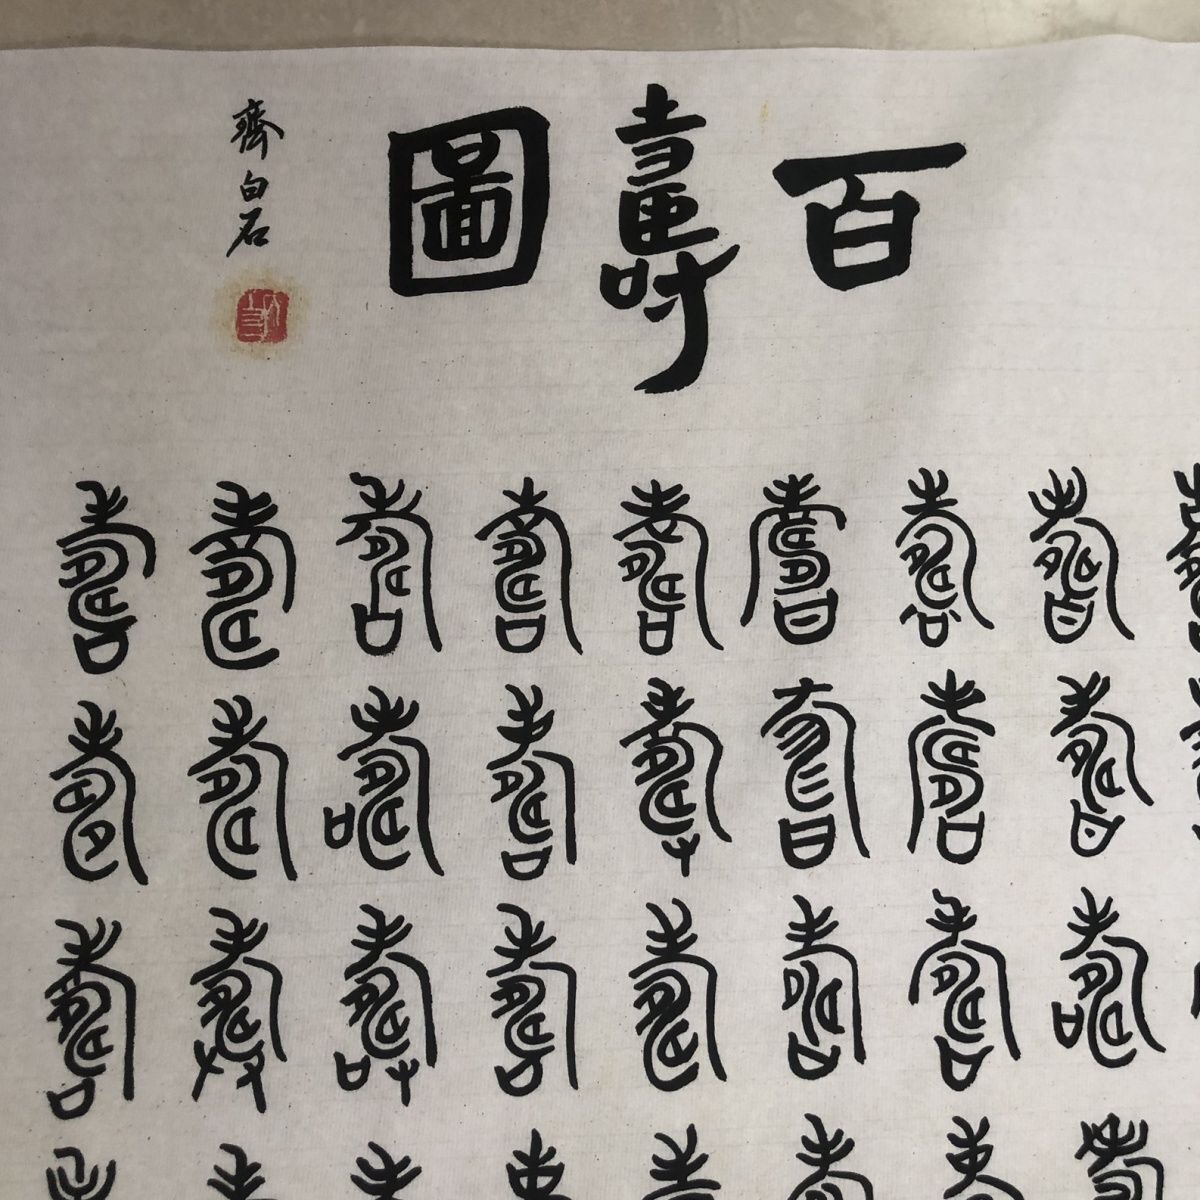 百壽圖
齊白石
壽壽壽壽壽壽壽壽
壽壽壽壽壽壽壽壽
壽壽壽壽壽壽壽壽